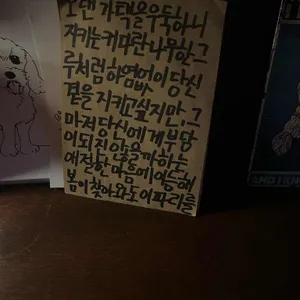 오랜 가택을 우둑하니
지키는 커다란 나무 한 그
루처럼 하염없이 당신
곁을 지키고 싶지만, 그
마저 당신에게 부담
이 되진 않을까 하는
애절한 마음에 이듬해
봄이 찾아와도 이파리를
AND I